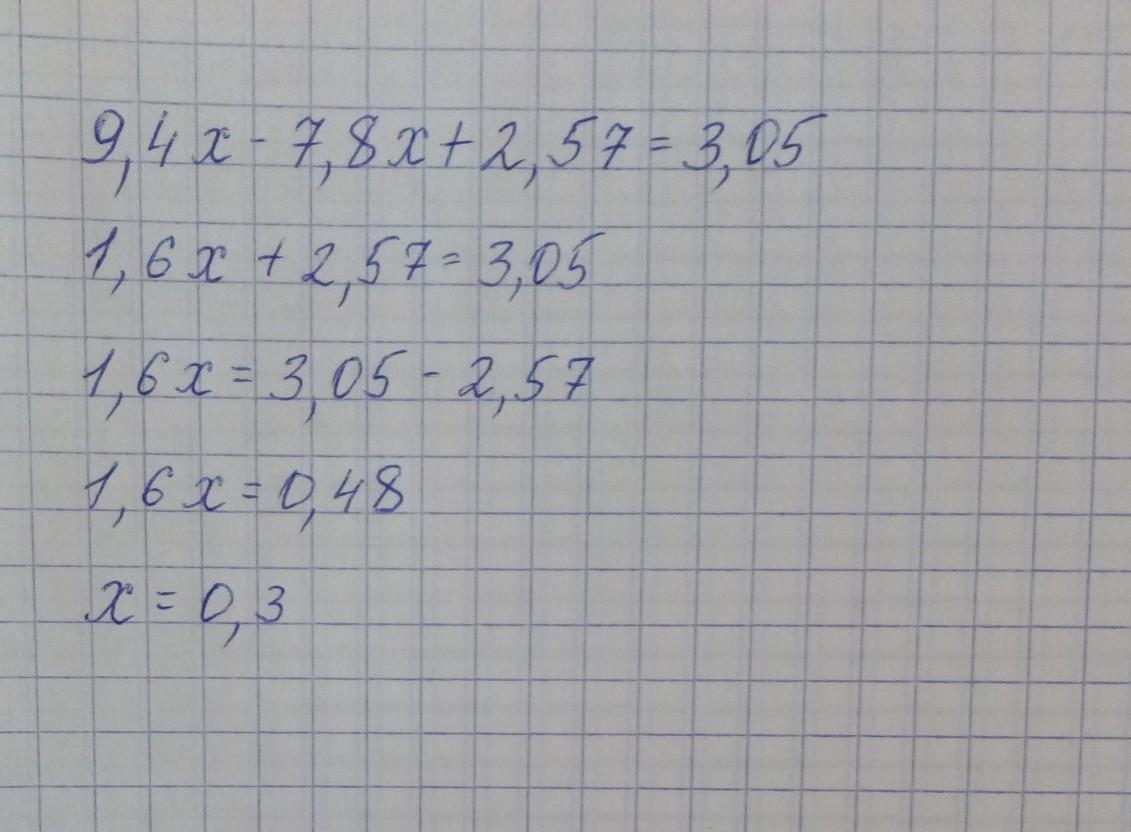 9,4x - 7,8x + 2,57 = 3,05
1,6x + 2,57 = 3,05
1,6x = 3,05 - 2,57
1,6x = 0,48
x = 0,3